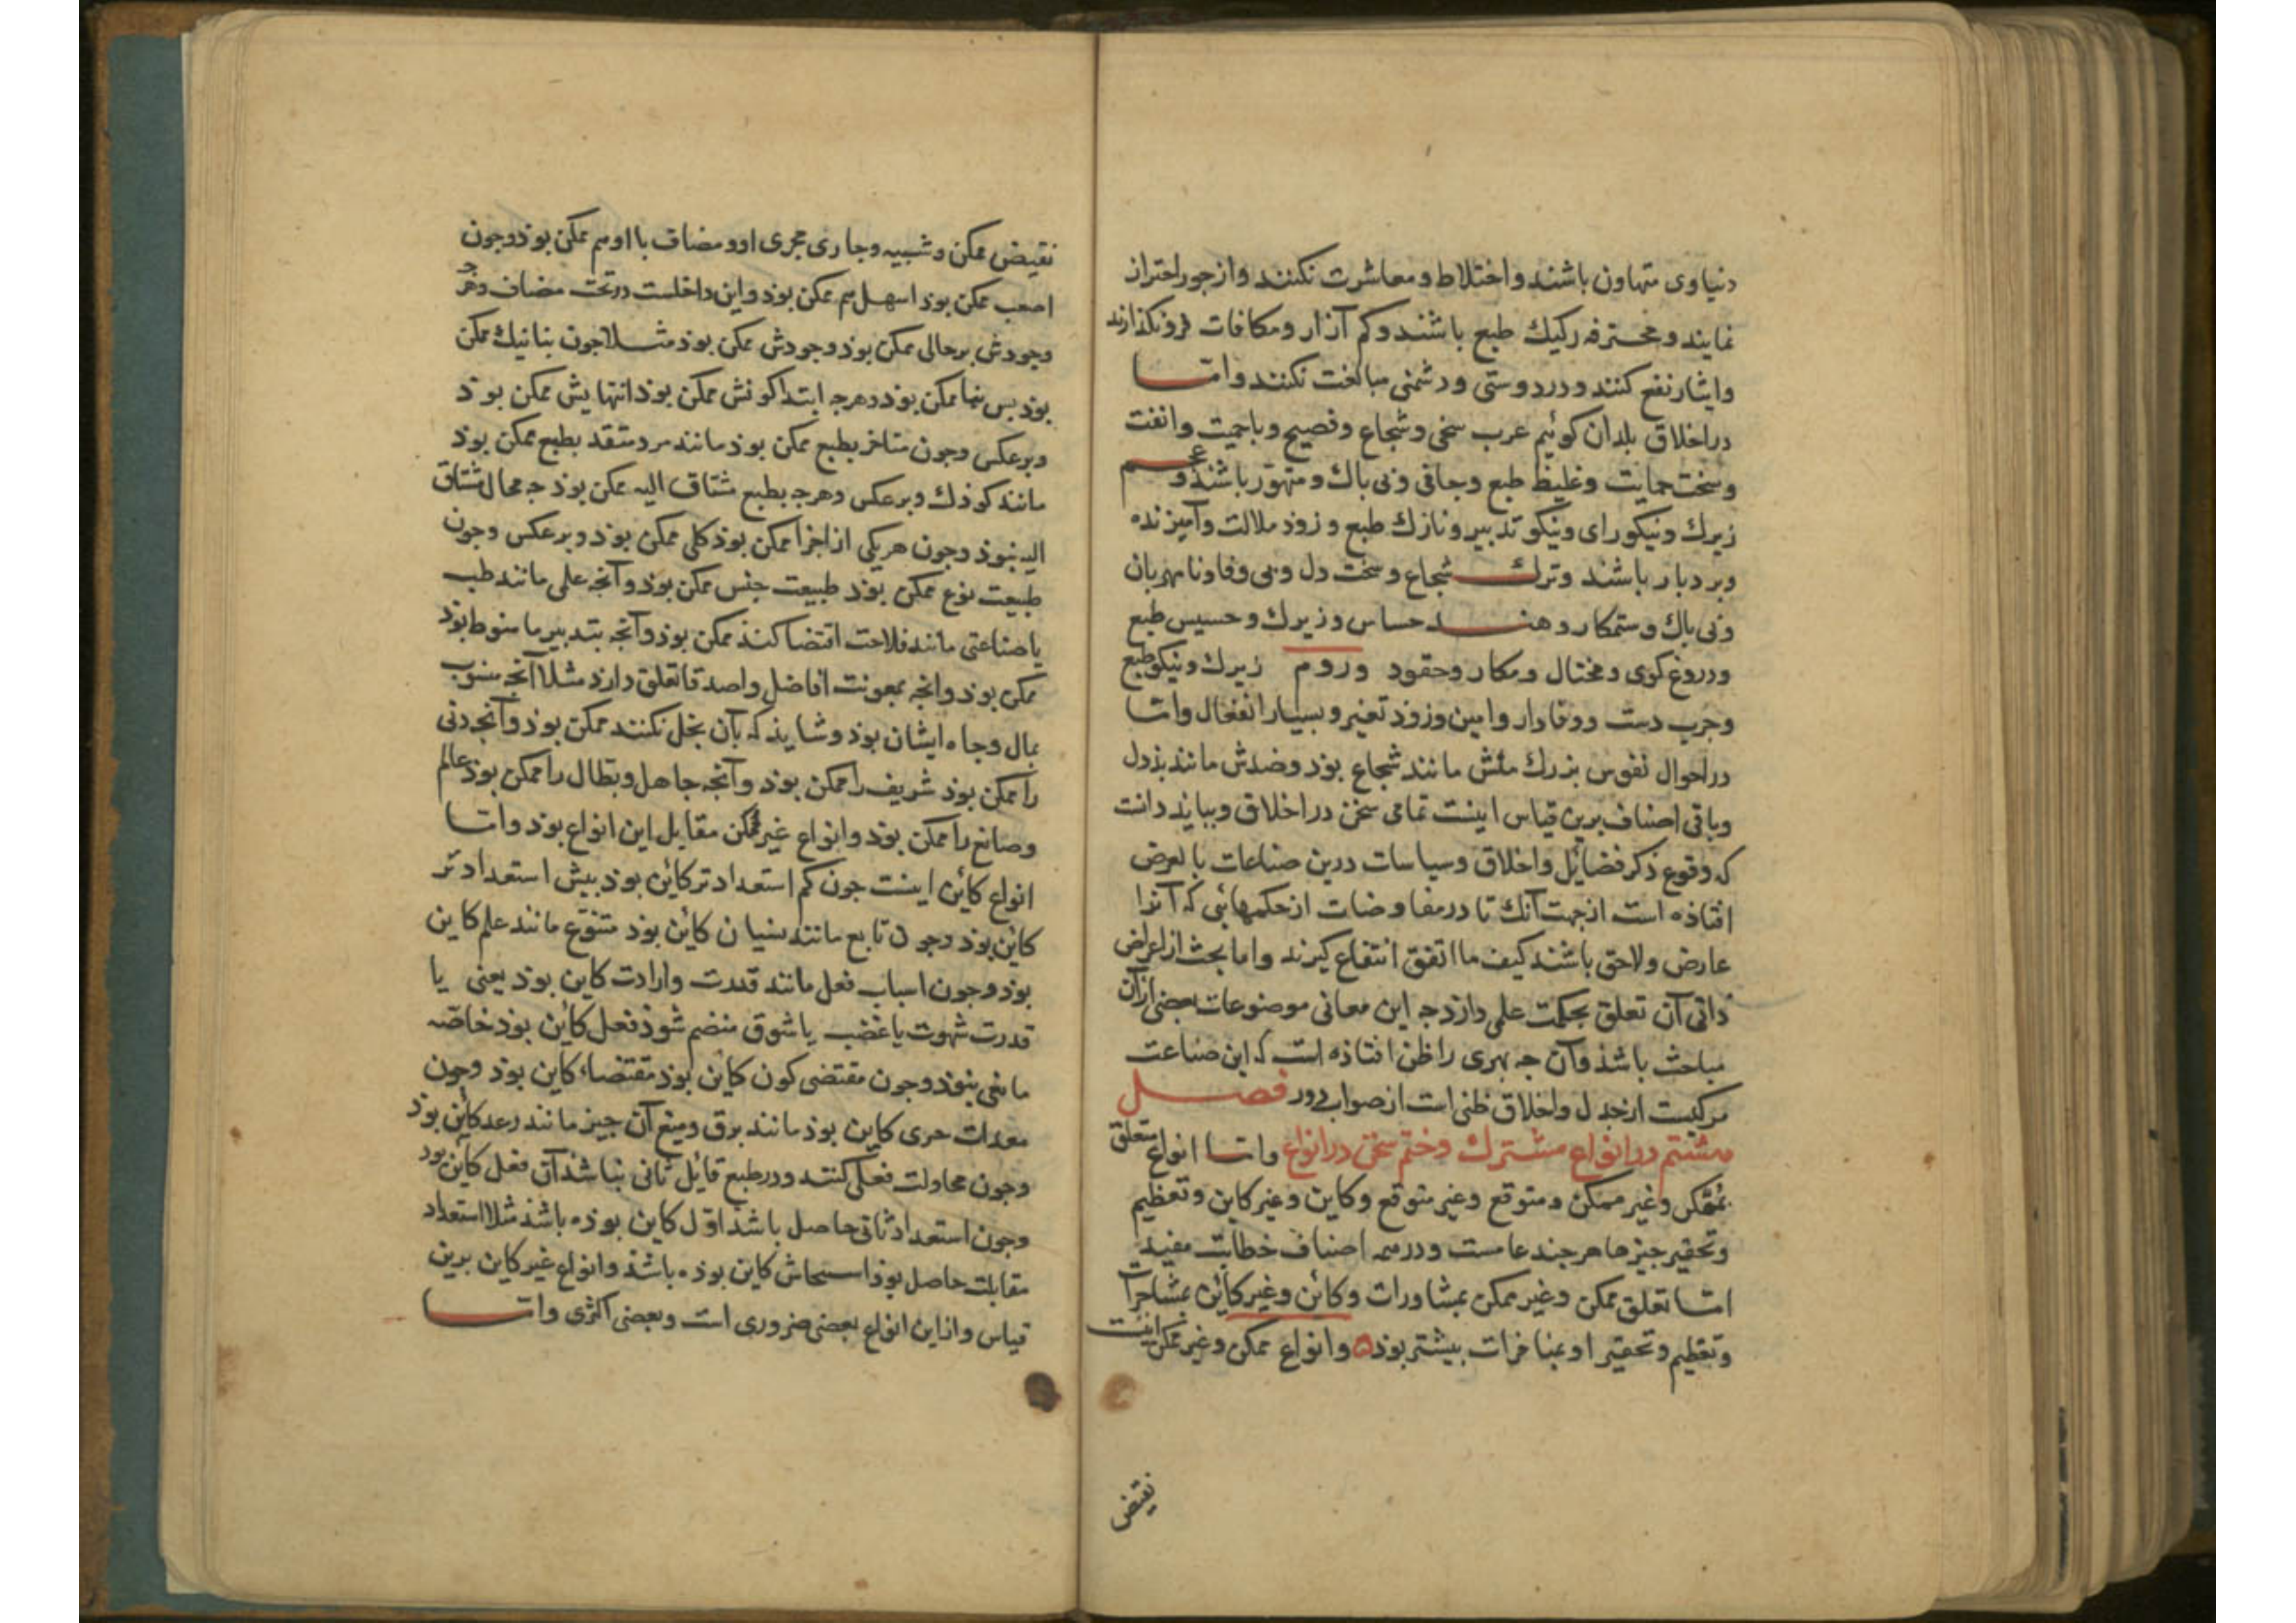 دنیاوی متهاون باشند و اختلاط و معاشرت نکنند و از جور احتراز
نمایند و محترفه رکیك طبع باشند و کم آزار و مکافات فرونکذارند
و ایثار نفع کنند و در دوستی و دشمنی مبالغت نکنند و امّا
در اخلاق بلدان کوئیم عرب سخی و شجاع و فصیح و باحمیت و انفت
و سخت حمایت و غلیظ طبع و جافی و بی باك و متهوّر باشند و عجم
زیرك و نیکو رای و نیکو تدبیر و نازك طبع و زوذ ملالت و آمیزنده
و بردبار باشند و ترك شجاع و سخت دل و بی وفا و نامهربان
و بی باك و ستمکار و هند حساس و زیرك و خسیس طبع
و دروغ کوی و مختال و مکار و حقود و روم زیرك و نیکو طبع
و جرب دست و وفادار و امین و زوذ تغیر و بسیار انفعال و امّا
در احوال نفوس بزرك منش مانند شجاع بوذ و ضدش مانند بذدل
و باقی اصناف برین قیاس اینست تمامی سخن در اخلاق و ببایذ دانست
که وقوع ذکر فضایل و اخلاق و سیاسات درین صناعات بالعرض
افتاذه است از جهت آنك تا در مفاوضات از حکمهائی که آنرا
عارض و لاحق باشند کیف ما اتفق انتفاع کیرند و اما بحث از اعراض
ذاتی آن تعلق بحکمت علمی دارد جه این معانی موضوعات بعضی از آن
مباحث باشذ و آن جه بهری را ظن افتاذه است که این صناعت
مرکبست از جدل و اخلاق ظنی است از صواب دور فصل
هشتم در انواع مشترك و ختم سخن در انواع و امّا انواع متعلق
بممکن و غیر ممکن و متوقع و غیر متوقع و کاین و غیر کاین و تعظیم
و تحقیر جیزها هرجند عامست و در همه اصناف خطابت مفید
امّا تعلق ممکن و غیر ممکن بمشاورات و کائن و غیر کائن بمشاجرات
و تعظیم و تحقیر او بمنافرات بیشتر بوذ و انواع ممکن و غیر ممکن اینست
نقیض
نقیض ممکن و شبیه و جاری مجری او و مضاف با او هم ممکن بوذ و جون
اصعب ممکن بوذ اسهل هم ممکن بوذ و این داخلست در تحت مضاف و هرجه
وجودش بر حالی ممکن بوذ وجودش ممکن بوذ مثلا جون بناء نیك ممکن
بوذ بس بنا ممکن بوذ و هرجه ابتداء کونش ممکن بوذ انتهایش ممکن بوذ
و برعکس و جون متاخر بطبع ممکن بوذ مانند مرد متقدم بطبع ممکن بوذ
مانند کوذك و برعکس و هرجه بطبع مشتاق الیه ممکن بوذ جه محال مشتاق
الیه نبوذ و جون هر یکی از اجزا ممکن بوذ کلی ممکن بوذ و برعکس و جون
طبیعت نوع ممکن بوذ طبیعت جنس ممکن بوذ و آنجه علمی مانند طب
یا صناعتی مانند فلاحت اقتضا کند ممکن بوذ و آنجه بتدبیر ما منوط بوذ
ممکن بوذ و انجه بمعونت افاضل و اصدقا تعلق دارد مثلا آنجه منسوب
بمال و جاه ایشان بوذ و شایذ که بآن بخل نکنند ممکن بوذ و آنجه دنی
را ممکن بوذ شریف را ممکن بوذ و آنجه جاهل و بطال را ممکن بوذ عالم
و صانع را ممکن بوذ و انواع غیر ممکن مقابل این انواع بوذ و امّا
انواع کائن اینست جون کم استعدادتر کاین بوذ بیش استعدادتر
کاین بوذ و جون تابع مانند نسیان کاین بوذ متبوع مانند علم کاین
بوذ و جون اسباب فعل مانند قدرت و ارادت کاین بوذ یعنی یا
قدرت شهوت یا غضب یا شوق منضم شوذ فعل کائن بوذ خاصّه
مانعی نبوذ و جون مقتضی کون کاین بوذ مقتضاء کاین بوذ و جون
معدات جیزی کاین بوذ مانند برق و میغ آن جیز مانند رعد کائن بوذ
و جون محاولت فعلی کنند و در طبع قایل تانی نباشذ آن فعل کاین بوذ
و جون استعداد ثانی حاصل باشذ اوّل کاین بوذه باشذ مثلا استعداد
مقابلت حاصل بوذ استیحاش کاین بوذه باشذ و انواع غیر کاین برین
قیاس و از این انواع بعضی ضروری است و بعضی اکثری و امّا